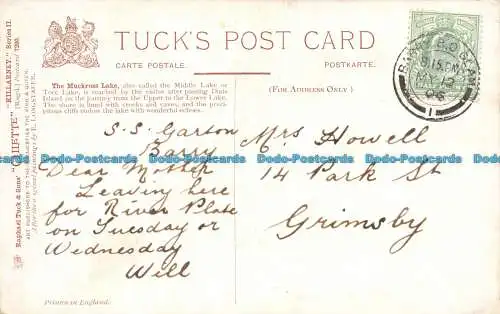 TUCK'S POST CARD
CARTE POSTALE.
POSTKARTE.
(FOR ADDRESS ONLY)
The Muckross Lake, also called the Middle Lake or
Torc Lake, is reached by the visitor after passing Dinis
Island on the journey from the Upper to the Lower Lake.
The shore is lined with creeks and caves, and the preci-
pitous cliffs endow the lake with wonderful echoes.
Raphael Tuck & Sons' "OILETTE" "KILLARNEY." Series II.
[Regd.] Postcard 7260.
ART PUBLISHERS TO THEIR MAJESTIES THE KING & QUEEN.
S.S. Garton
Barry
Dear Mother
Leaving here
for River Plate
on Tuesday or
Wednesday
Will
Mrs Howell
14 Park St
Grimsby
Printed in England.
Dodo-Postcards Dodo-Postcards Dodo-Postcards Dodo-Postcards